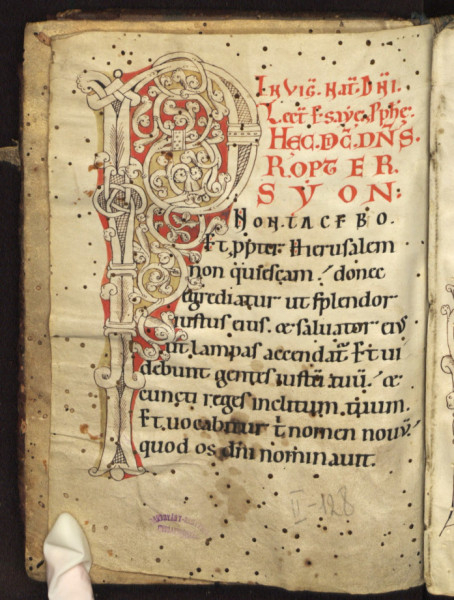 IN VIG̅. NAT̅. DN̅I.
Lect̅. ẏsaye. ꝓphe.
HEC. DC̅. DN̅S.
PROPTER
SYON:
NON TACEBO.
Et ꝓpter hierusalem
non quiescam. donec
egrediatur ut splendor
iustus eius. & saluator ei᷒
ut lampas accendat̅. Et ui
debunt gentes iustu̅ tuu̅. &
cuncti reges inclitum tuum.
Et uocabitur t̅ nomen nouu̅.
quod os dn̅i nominauit.
VI-128